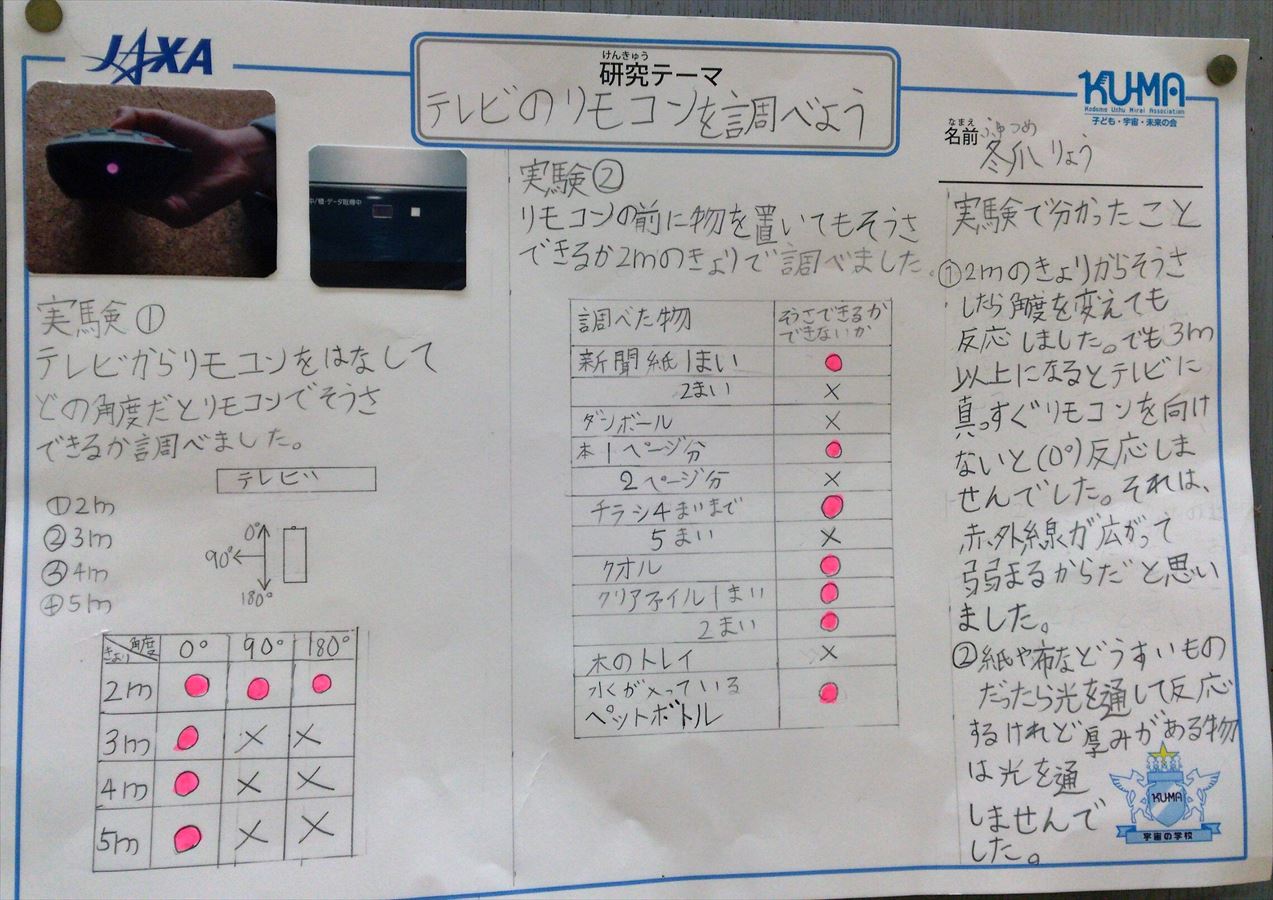 JAXA
けんきゅう
研究テーマ
テレビのリモコンを調べよう
KU-MA
Kodomo Uchu Mirai Association
子ども・宇宙・未来の会
なまえ
名前
ふゆつめ
冬爪りょう
中/橙・データ取得中
実験①
テレビからリモコンをはなして
どの角度だとリモコンでそうさ
できるか調べました。
テレビ
①2m
②3m
③4m
④5m
0°
90°
180°
角度
きょり
0° 90° 180°
2m
3m × ×
4m × ×
5m × ×
実験②
リモコンの前に物を置いてもそうさ
できるか2mのきょりで調べました。
調べた物 そうさできるか
できないか
新聞紙1まい
2まい ×
ダンボール ×
本1ページ分
2ページ分 ×
チラシ4まいまで
5まい ×
タオル
クリアファイル1まい
2まい
木のトレイ ×
水が入っている
ペットボトル
実験で分かったこと
①2mのきょりからそうさ
したら角度を変えても
反応しました。でも3m
以上になるとテレビに
真っすぐリモコンを向け
ないと(0°)反応しま
せんでした。それは、
赤外線が広がって
弱まるからだと思い
ました。
②紙や布などうすいもの
だったら光を通して反応
するけれど厚みがある物
は光を通
しませんで
した。
KU-MA
宇宙の学校